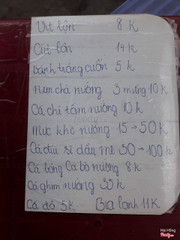 Vịt lộn 8k
Cút lộn 14k
bánh tráng cuốn 5k
Nem chả nướng 3 miếng 10k
Cá chỉ tẩm nướng 10k
Mực khô nướng 15 → 50k
Cá đù sỉ dầu mè 30 → 100k
Cá bống Cá bò nướng 8k
Cá ghim nướng 35k
Cá đỏ 5k Bia lạnh 11k